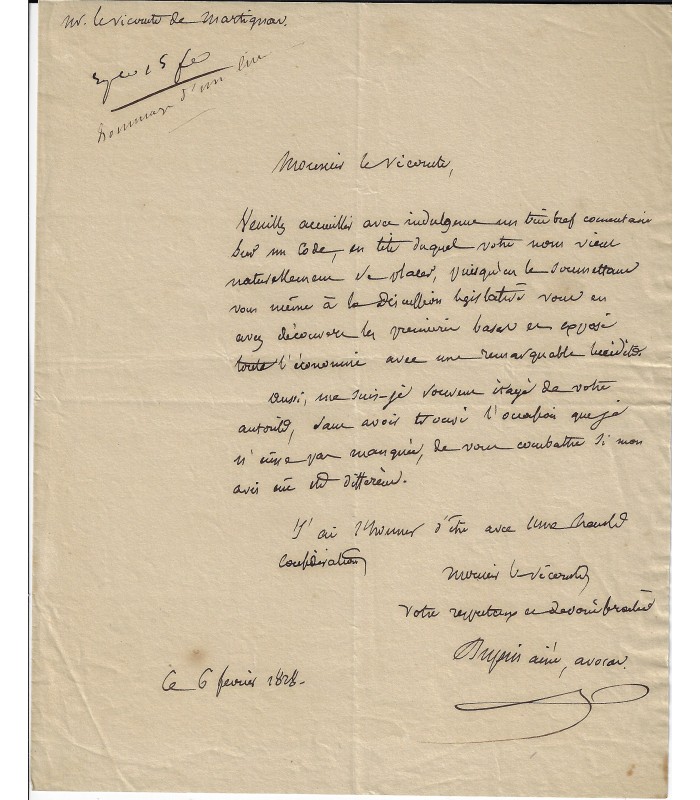 Mr. le vicomte de Martignac.
15 fe
hommage d'un livre
Monsieur le Vicomte,
Veuillez accueillir avec indulgence un très bref commentaire
sur un Code, en tête duquel votre nom vient
naturellement se placer, puisqu'en le soumettant
vous même à la discussion législative vous en
avez découvert les premières bases et exposé
toute l'économie avec une remarquable lucidité.
Aussi, me suis-je souvent étayé de votre
autorité, sans avoir trouvé l'occasion que je
n'eusse pas manquée, de vous combattre si mon
avis eût été différent.
J'ai l'honneur d'être avec une haute
considération
Monsieur le Vicomte
votre respectueux et dévoué
Dupin aîné, avocat.
Ce 6 février 1828.